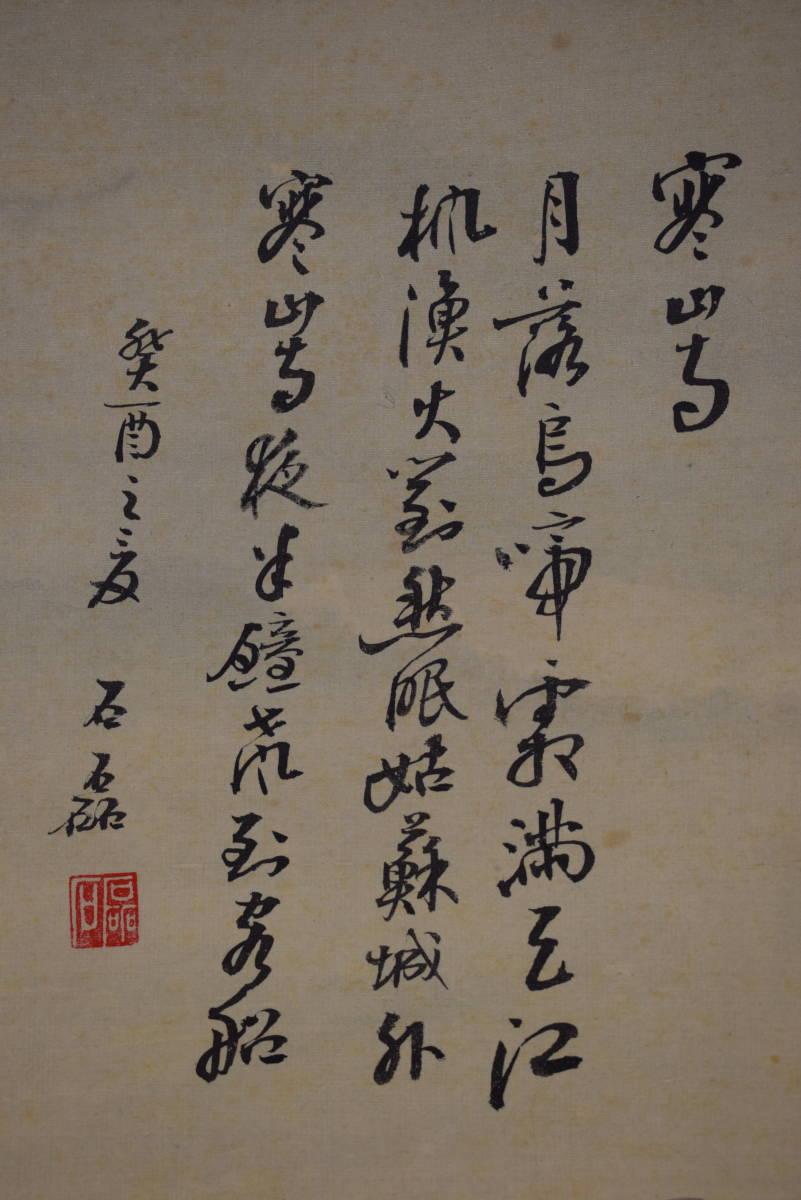 寒山寺
月落烏啼霜滿天江
楓漁火對愁眠姑蘇城外
寒山寺夜半鐘聲到客船
癸酉之夏 石磊